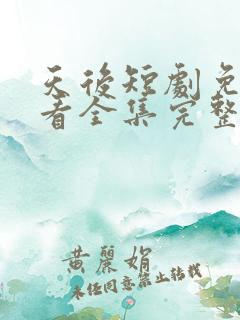 天後短劇免
看全集完整
黄麗娟
未经同意禁止转载